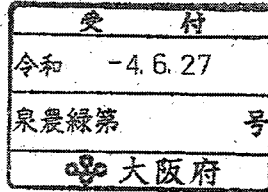 受付
令和 -4.6.27
泉農緑第 号
大阪府